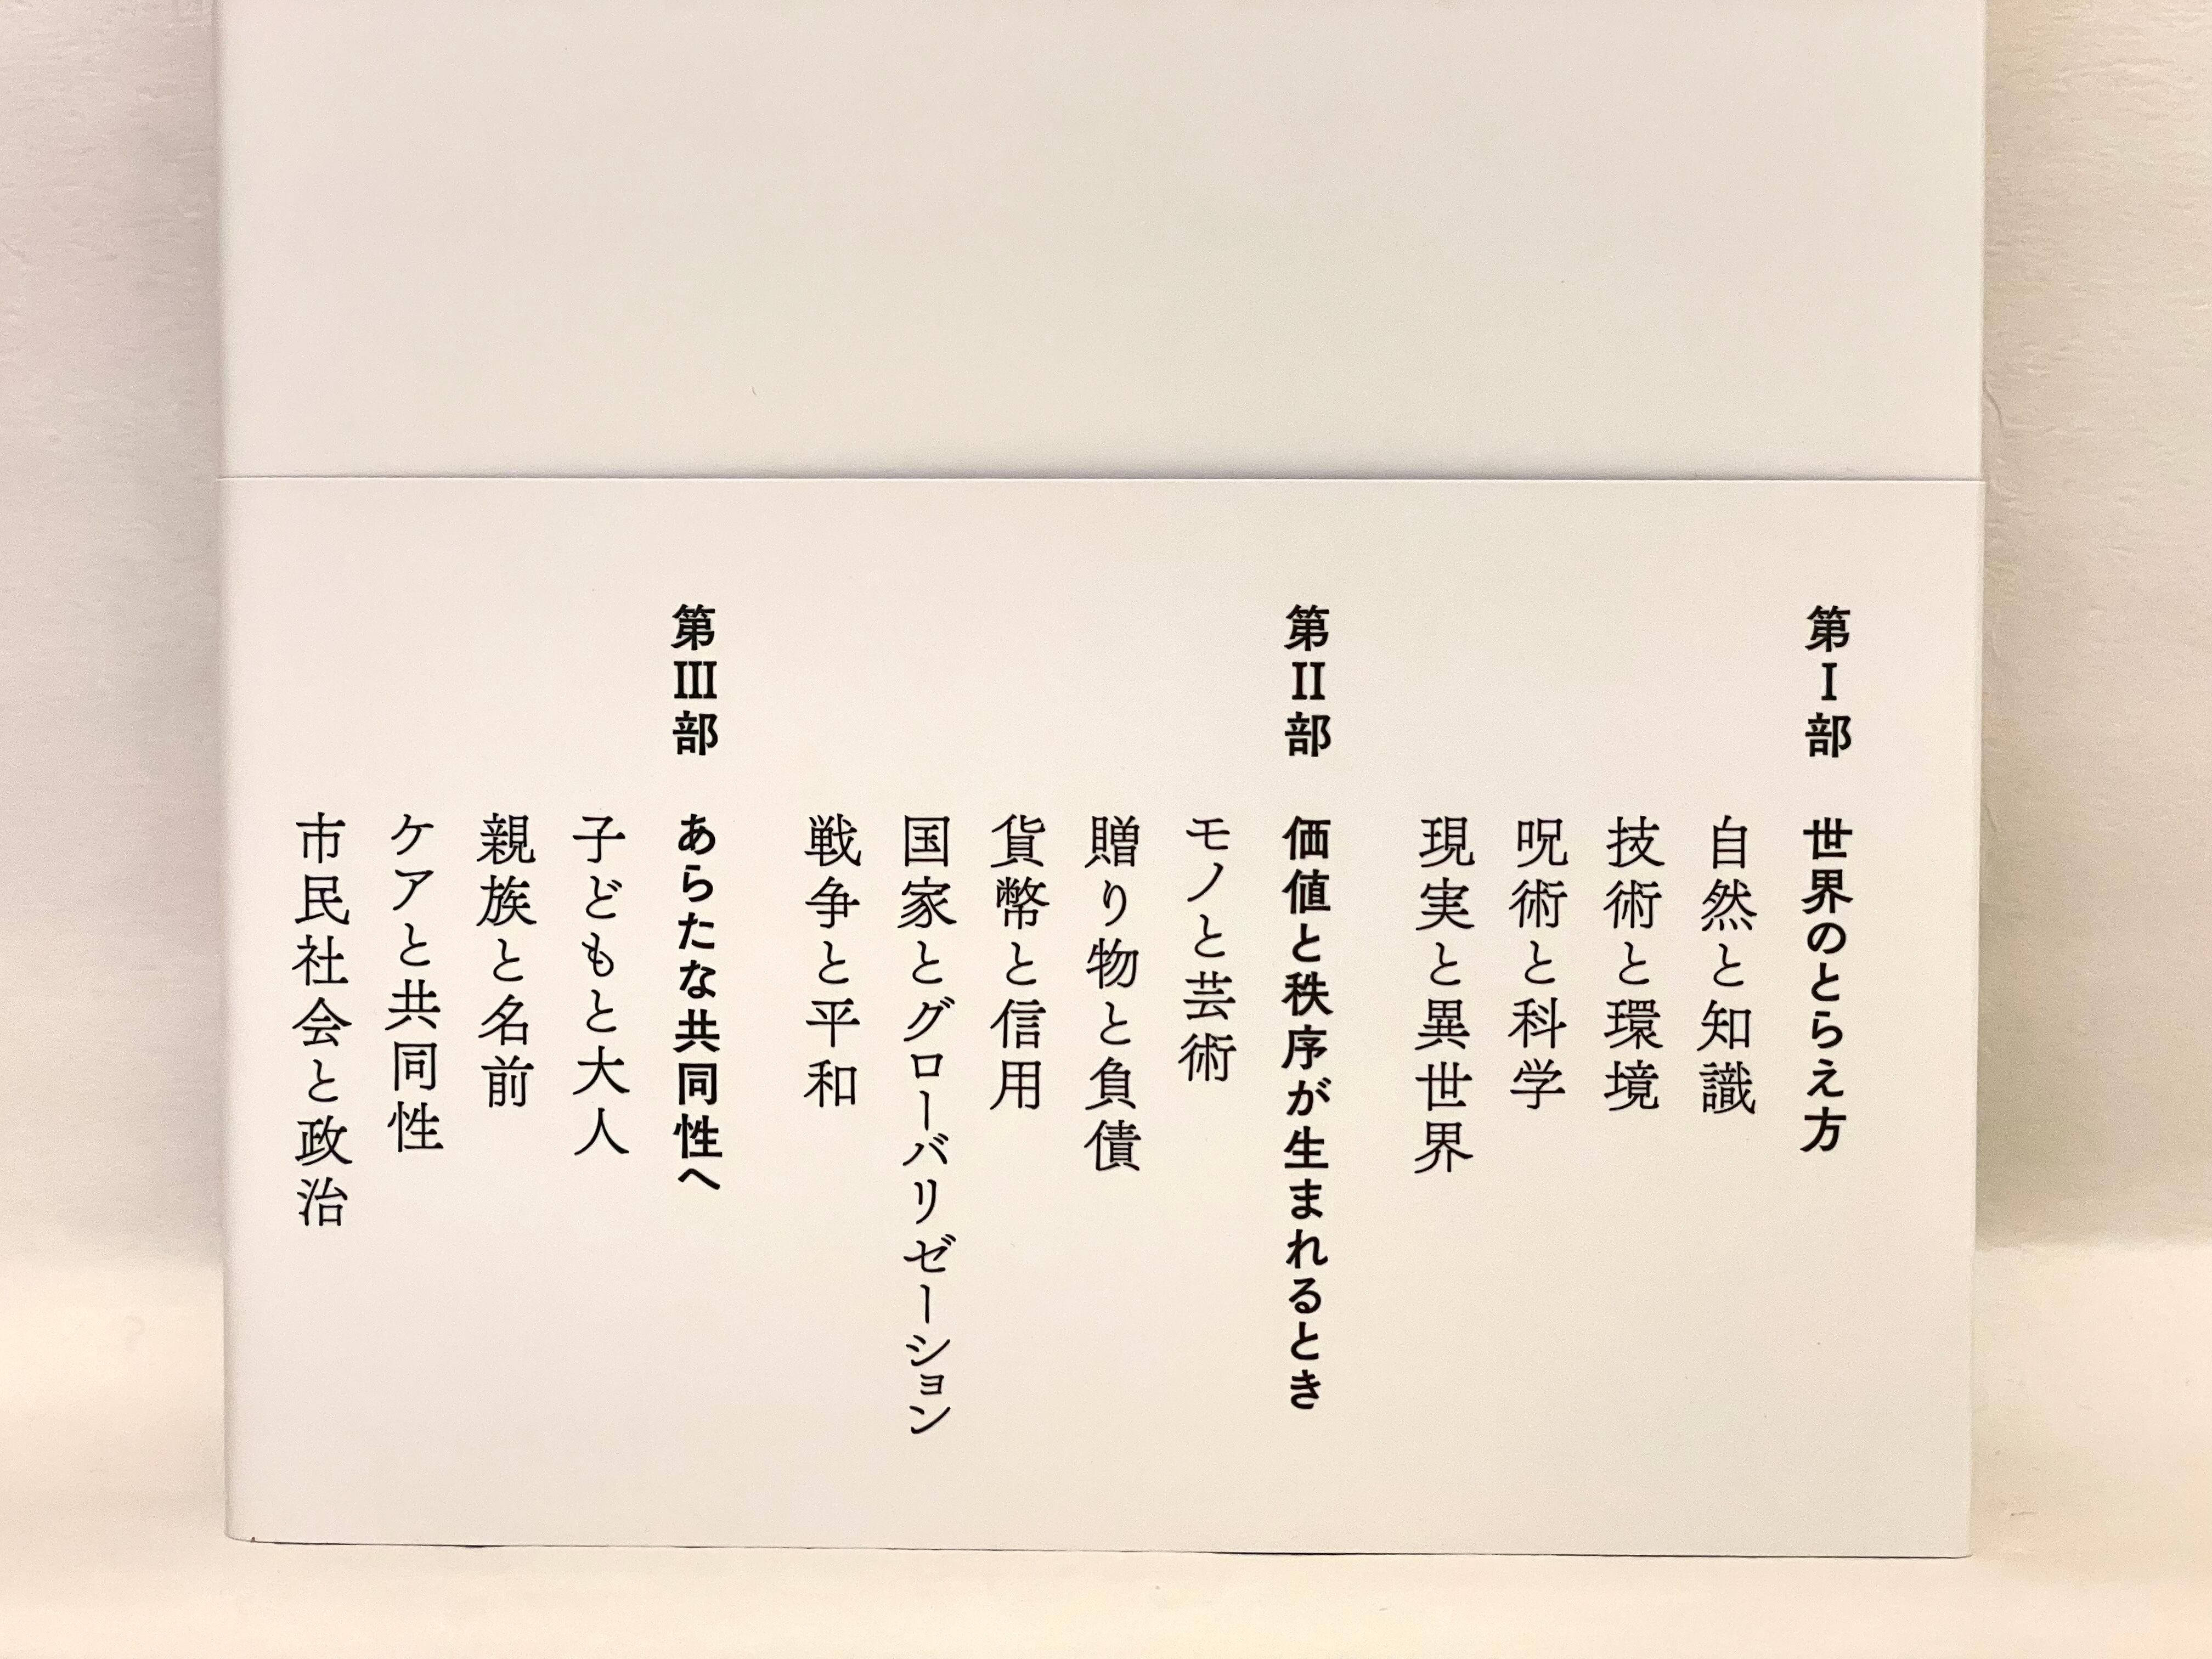 第Ⅰ部 世界のとらえ方
自然と知識
技術と環境
呪術と科学
現実と異世界
第Ⅱ部 価値と秩序が生まれるとき
モノと芸術
贈り物と負債
貨幣と信用
国家とグローバリゼーション
戦争と平和
第Ⅲ部 あらたな共同性へ
子どもと大人
親族と名前
ケアと共同性
市民社会と政治